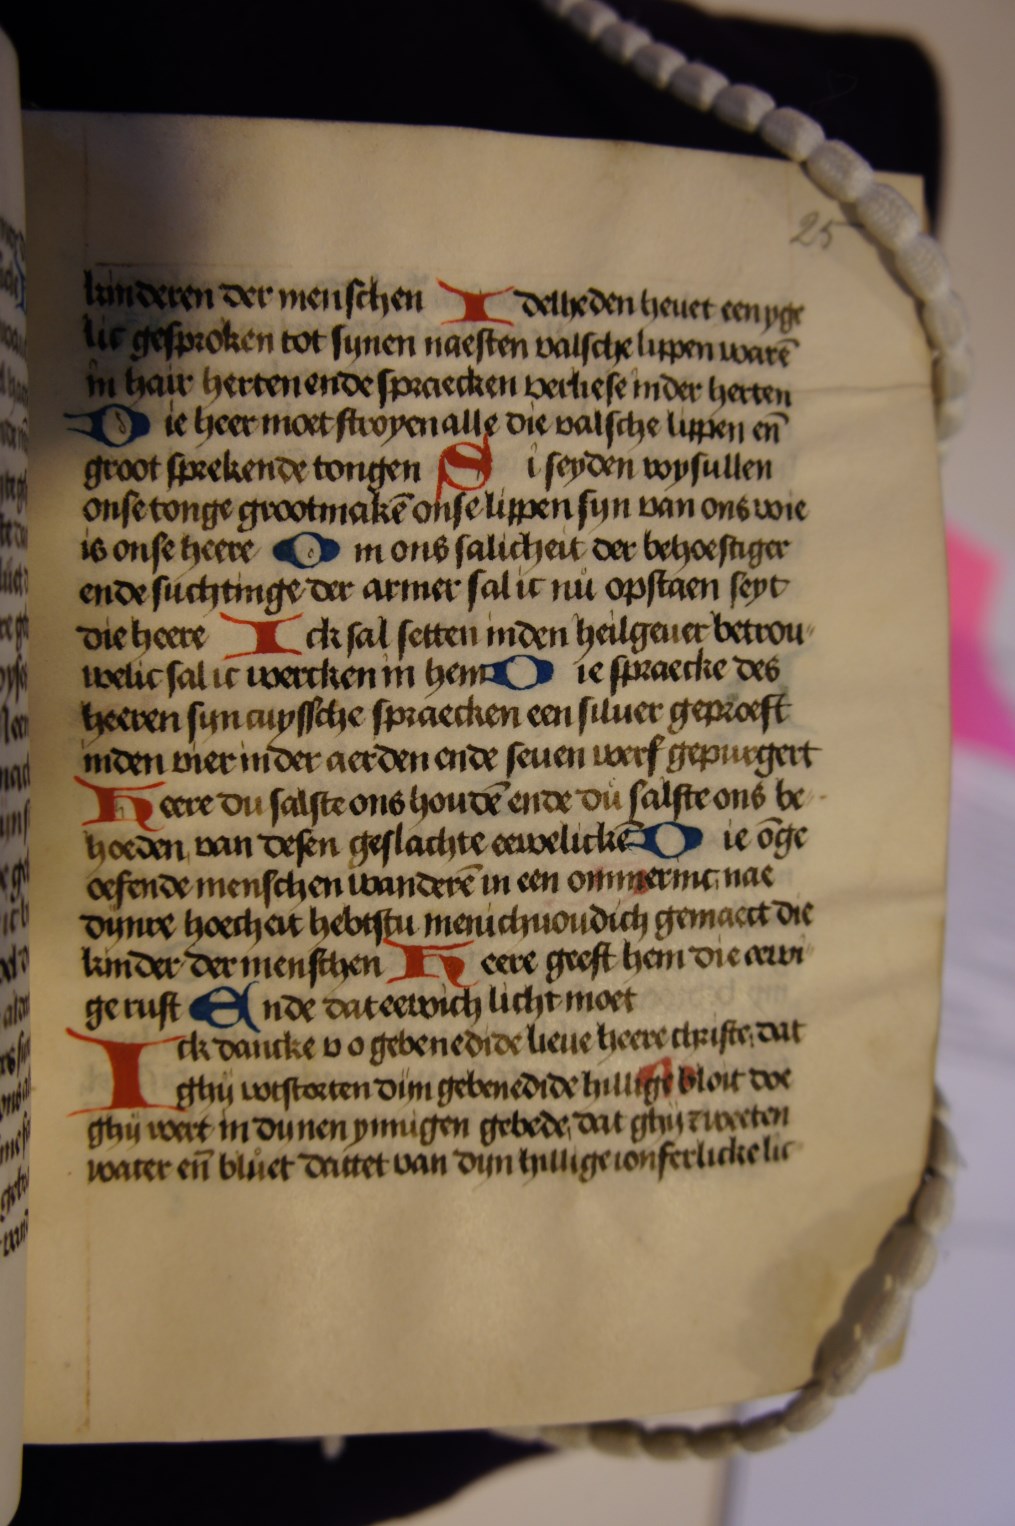 25
kinderen der menschen Idelheden heuet een yge
lic gesproken tot synen naesten valsche lippen warē
in hair herten ende spraecken verliese in der herten
Die heer moet stroyen alle die valsche lippen en̄
groot sprekende tongen Si seyden wy sullen
onse tonge grootmakē onse lippen syn van ons wie
is onse heere Om ons salicheit der behoeftiger
ende suchtinge der armer sal ic nu opstaen seyt
die heere Ick sal setten inden heilgeuer betrou
welic sal ic wercken in hem Die spraecke des
heeren syn cuyssche spraecken een siluer geproeft
inden vier in der aerden ende seuen werf gepurgert
Heere du salste ons houdē ende du salste ons be
hoeden van desen geslachte eewelickē Die ōge
oefende menschen wanderē in een ommerinc nae
dynre hoecheit hebtstu menichuoudich gemaect die
kinder der menschen Heere geeft hem die eewi
ge rust Ende dat eewich licht moet
Ick dancke v o gebenedide lieue heere christe, dat
ghy wtstorten dijn gebenedide hillige bloit doe
ghy wert in dynen ynnigen gebede, dat ghy zweeten
water en̄ bluet dattet van dyn hillige ionferlicke lic